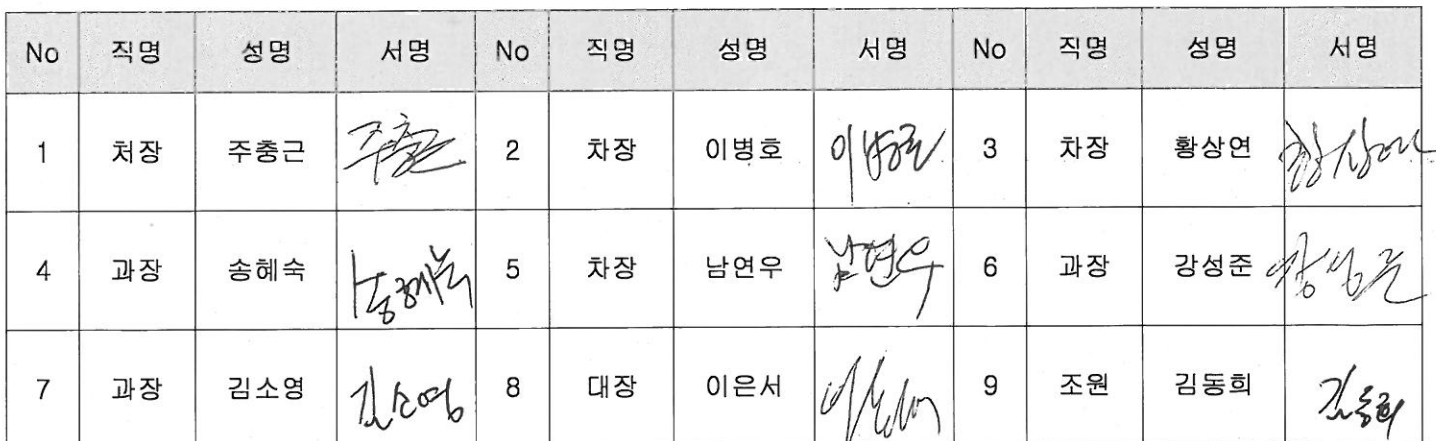 No 직명 성명 서명 No 직명 성명 서명 No 직명 성명 서명
1 처장 주충근 주충근 2 차장 이병호 이병호 3 차장 황상연 황상연
4 과장 송혜숙 송혜숙 5 차장 남연우 남연우 6 과장 강성준 강성준
7 과장 김소영 김소영 8 대장 이은서 이은서 9 조원 김동희 김동희